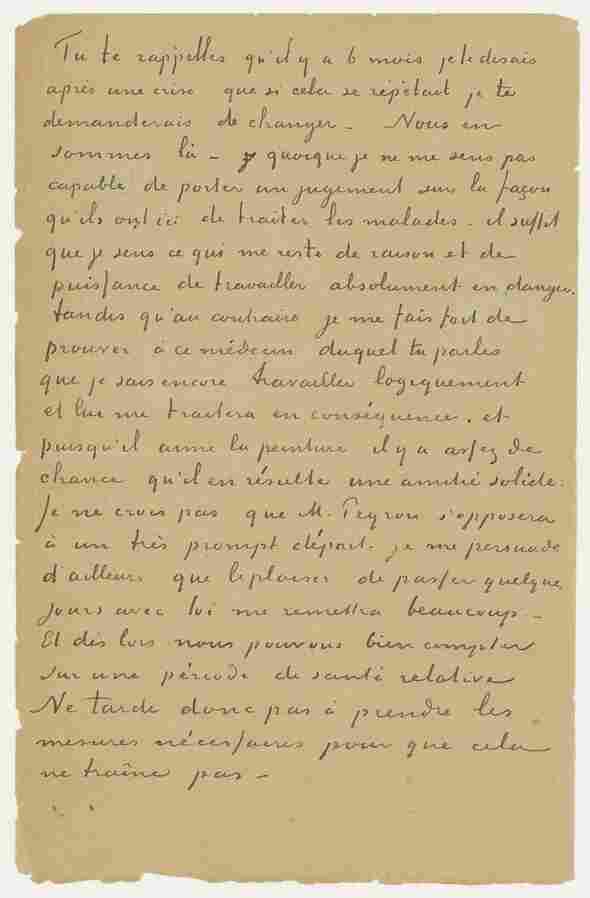 Tu te rappelles qu'il y a 6 mois je te disais
après une crise que si cela se répétait je te
demanderais de changer – Nous en
sommes là – quoique je ne me sens pas
capable de porter un jugement sur la façon
qu'ils ont ici de traiter les malades – il suffit
que je sens ce qui me reste de raison et de
puissance de travailler absolument en danger.
tandis qu'au contraire je me fais fort de
prouver à ce médecin duquel tu parles
que je sais encore travailler logiquement
et lui me traitera en conséquence. et
puisqu'il aime la peinture il y a assez de
chance qu'il en résulte une amitié solide.
Je ne crois pas que M. Peyron s'opposera
à un très prompt départ. je me persuade
d'ailleurs que le plaisir de passer quelques
jours avec toi me remettra beaucoup –
Et dès lors nous pouvons bien compter
sur une période de santé relative
Ne tarde donc pas à prendre les
mesures nécessaires pour que cela
ne traîne pas –